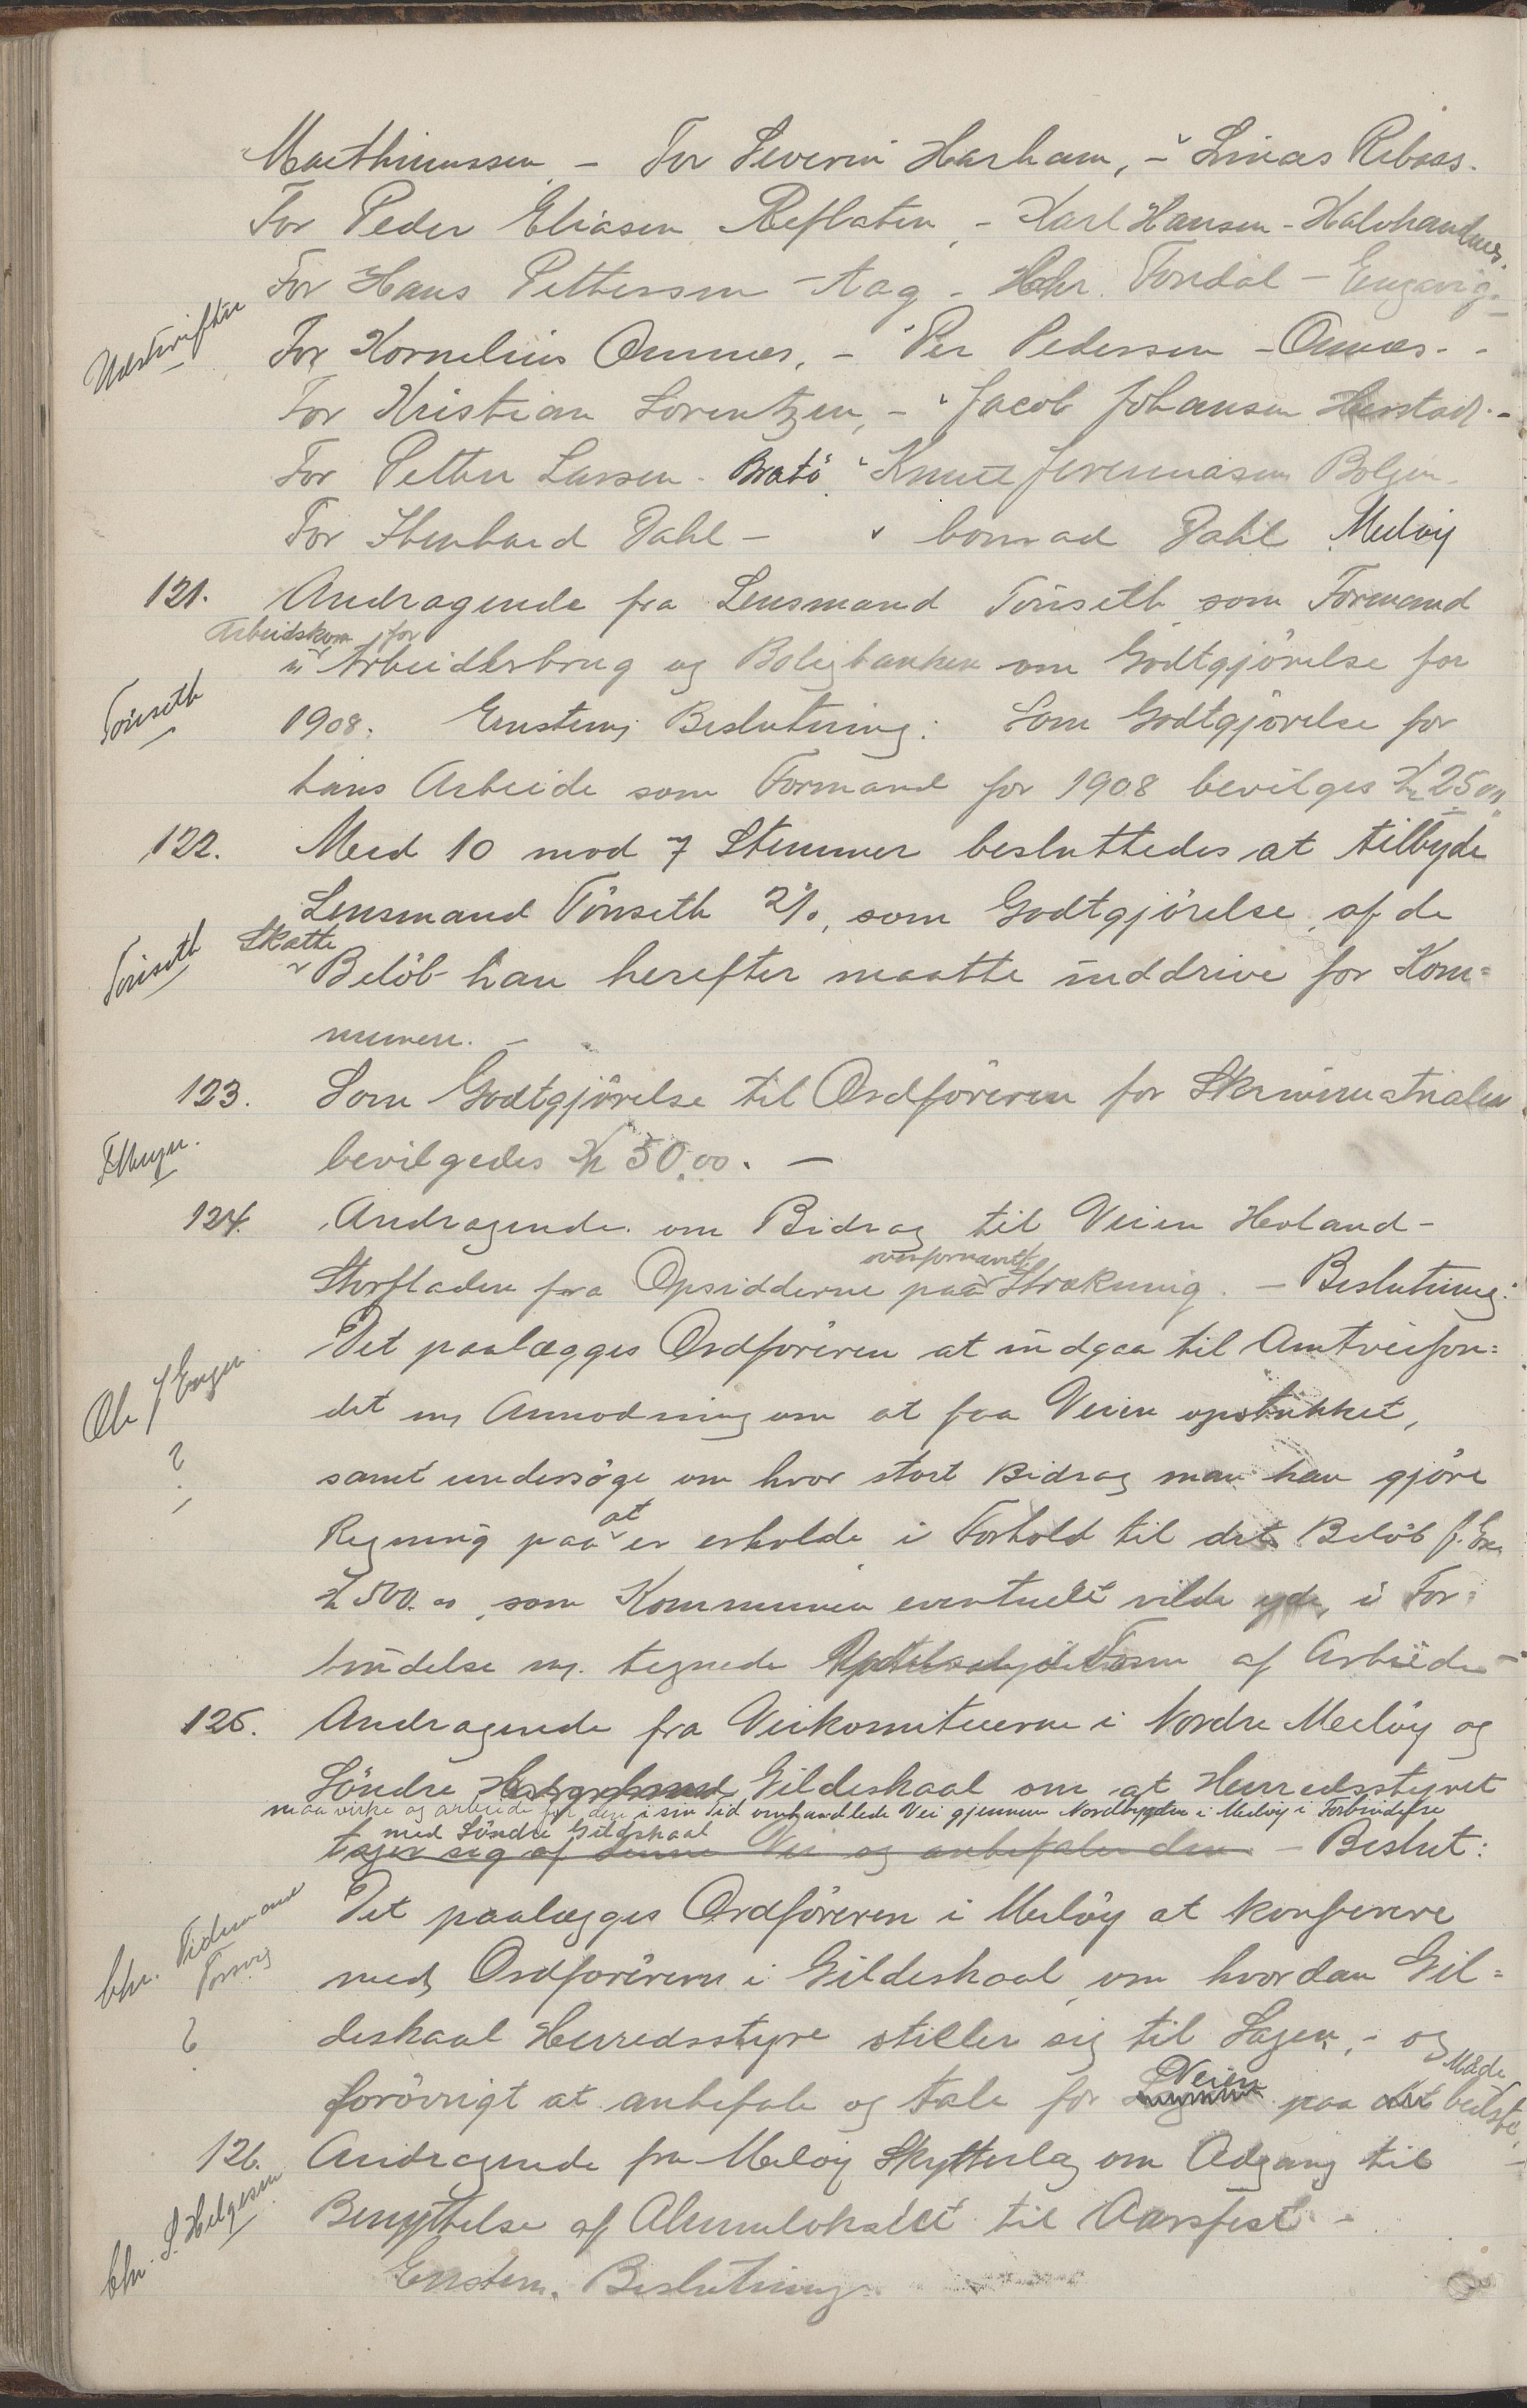 Marthinussen - For Severin Harham, - " Linæs Rebaas.
For Peder Eliasen Reflaten, - Karl Hansen - Halvhandnes.
For Hans Pettersen - Aag - Hchr. Fondal - Engavig -
Udskrifter
For Kornelius Ørnnes, - " Per Pedersen - Ørnæs - -
For Kristian Lorentzen, - " Jacob Johansen Havstad. -
For Petter Larsen - Bratö " Knut Jeremiasen Bolgen.
For Edvard Dahl - " Conrad Dahl Melöy
121. Andragende fra Lensmand Tönseth som Formand
Arbeidskom for
i Arbeiderbrug og Boligbanken om Godtgjörelse for
Tönseth
1908. Enstemj Beslutning: Som Godtgjörelse for
hans Arbeide som Formand for 1908 bevilges Kr 25 00
122. Med 10 mod 7 Stemmer besluttedes at tilbyde
Lensmand Tönseth 2%, som Godtgjörelse, af de
Tönseth
Skatte
Belöb han herefter maatte inddrive for Kom=
munen. -
123. Som Godtgjörelse til Ordföreren for Skrivematrialer
bevilgedes Kr 50.00. -
124. Andragende om Bidrag til Veien Hovland -
ovenfornævnte
Storfladen fra Opsidderne paa Strækning. - Beslutning:
Det paalægges Ordföreren at indgaa til Amtveifon=
Ole J Enger
?
det m Anmodning om at faa Veien opstukket,
samt undersöge om hvor stort Bidrag man kan gjöre
at
Regning paa er erholde i Forhold til det Belöb f. Ex
Kr 500.00, som Kommunen eventuelt vilde yde, i For=
bindelse m. tegnede af Arbeide -
125. Andragende fra Veikomiteerne i Nordre Melöy og
Söndre Gildeskaal om at Herredsstyret
maa virke og arbeide for den i sin Tid omhandlede Vei gjennem Nordbygden i Melöy i Forbindelse
med Söndre Gildskaal
tager sig af denne Vei og anbefaler den - Beslut:
Det paalægges Ordföreren i Melöy at konferere
Chr. Tidemand
Torsvig
?
med Ordföreren i Gildeskaal om hvordan Gil=
deskaal Herredsstyre stiller sig til Sagen, - og
Veien Maade
forövrigt at anbefale og tale for paa bedste
126. Andragende fra Melöy Skytterlag om Adgang til
Chr. S. Helgesen
Benyttelse af Almulokalet til Aarsfest -
Enstem. Beslutning